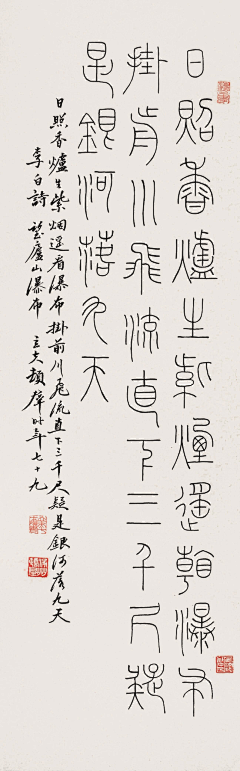 日照香爐生紫煙遙看瀑布
掛前川飛流直下三千尺疑
是銀河落九天
日照香爐生紫烟遥看瀑布掛前川飛流直下三千尺疑是銀河落九天
李白詩 望廬山瀑布 年七十九